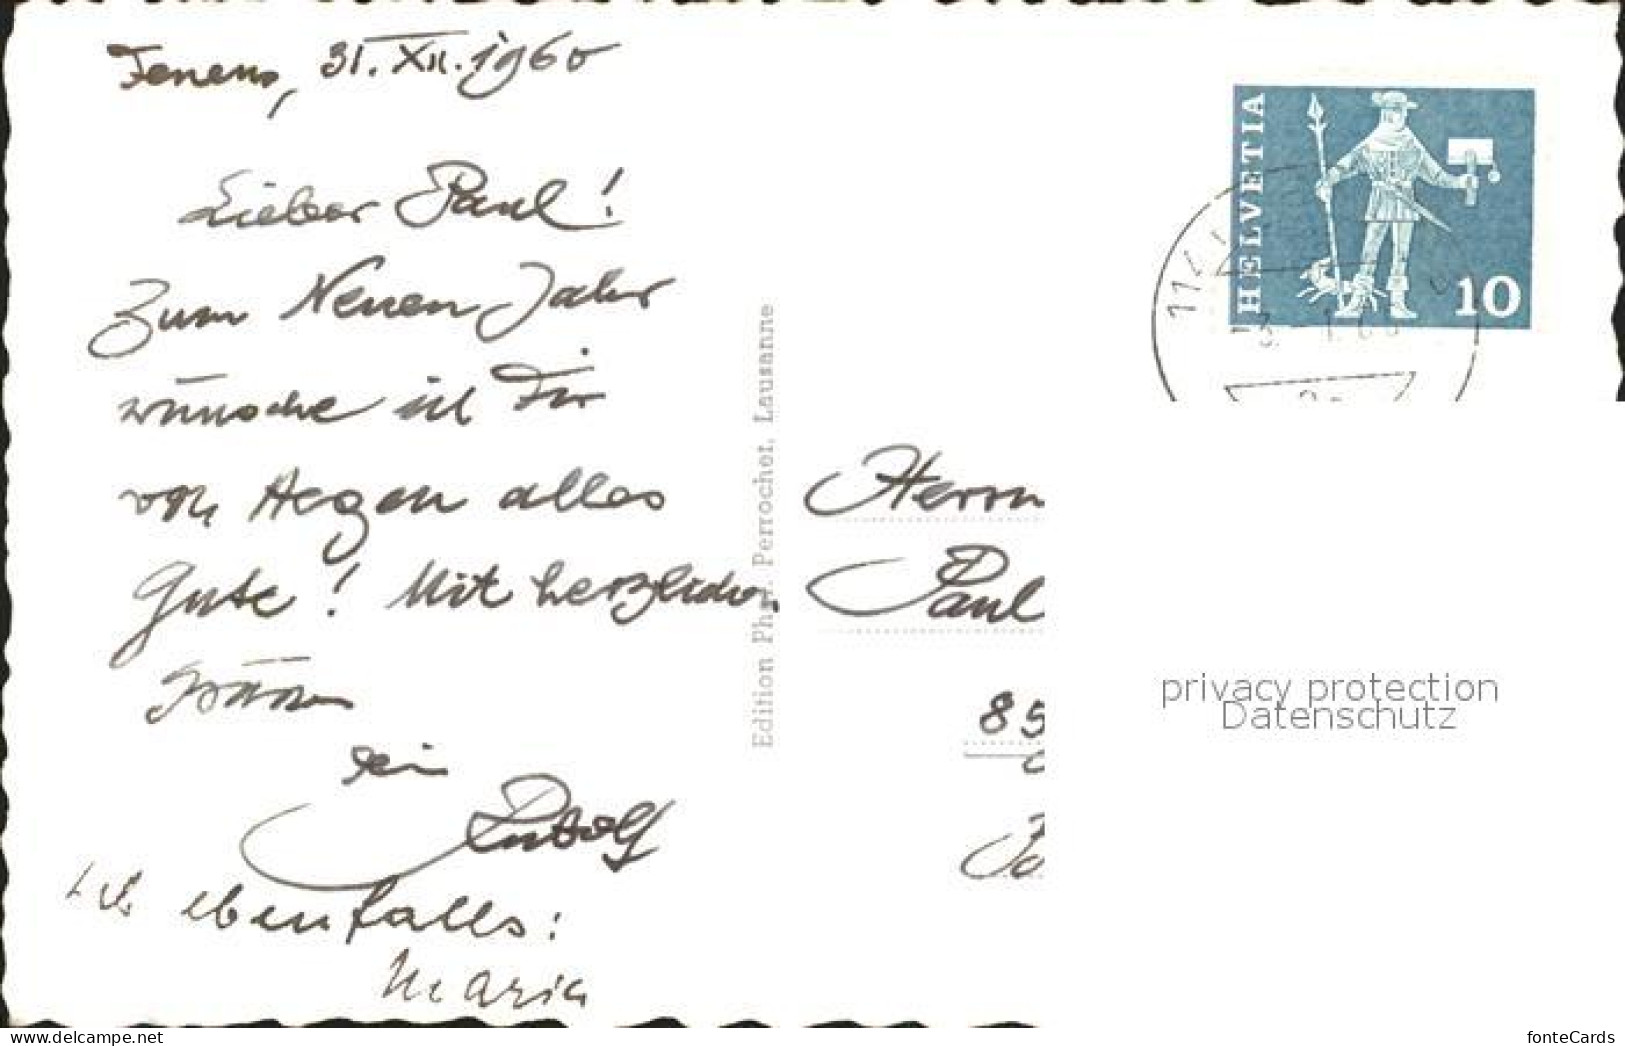 Fenens, 31. XII. 1960
Lieber Paul!
Zum Neuen Jahr
wünsche ich Dir
von Herzen alles
Gute! Mit herzlichen
Grüssen
Dein
Rudolf
Ich ebenfalls:
Maria
Edition Phot. Perrochet, Lausanne
HELVETIA
10
Herrn
Paul
85
privacy protection
Datenschutz
www.delcampe.net
fonteCards